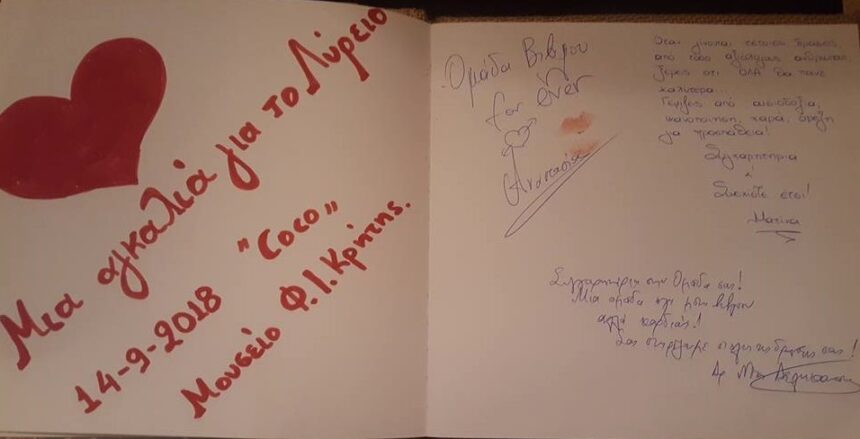 Μια αγκαλιά για το Λύρειο
14-9-2018 "Coco"
Μουσείο Φ.Ι.Κρήτης.
Ομάδα Βιβλου
for ever
Αναστασία
Όταν γίνονται τέτοιες δράσεις,
από τόσο αξιόλογους ανθρώπους,
ξέρεις ότι ΟΛΑ θα πάνε
καλύτερα...
Γέμισες από αισιοδοξία,
ικανοποίηση, χαρά, όρεξη
για προσπάθεια!
Συγχαρητήρια
&
Συνεχίστε έτσι!
Ματίνα
Συγχαρητήρια στην Ομάδα σας!
Μια ομάδα όχι μόνο βιβλου
αλλά καρδιάς!
Σας στηρίζουμε σ' όλες τις δράσεις σας!